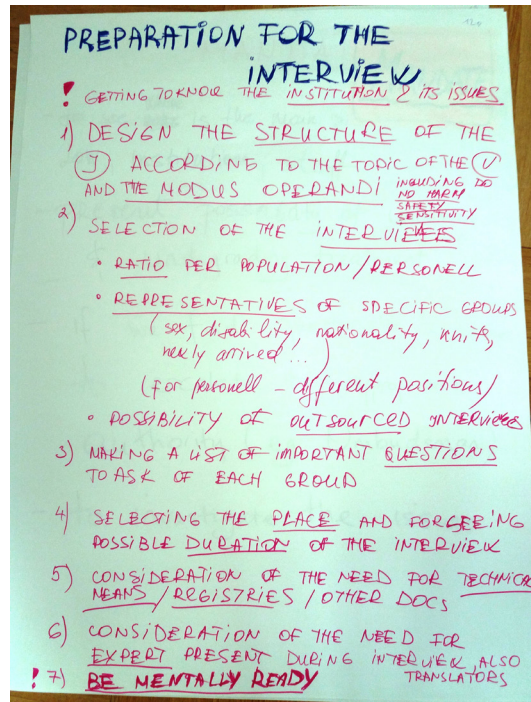 PREPARATION FOR THE
INTERVIEW
! GETTING TO KNOW THE INSTITUTION & ITS ISSUES
1) DESIGN THE STRUCTURE OF THE
(I) ACCORDING TO THE TOPIC OF THE (V)
AND THE MODUS OPERANDI INCLUDING DO
NO HARM
SAFETY
SENSITIVITY
2) SELECTION OF THE INTERVIEWEES
• RATIO PER POPULATION / PERSONELL
• REPRESENTATIVES OF SPECIFIC GROUPS
(sex, disability, nationality, units,
newly arrived ...)
(for personell - different positions)
• POSSIBILITY OF OUTSOURCED INTERVIEWS
3) MAKING A LIST OF IMPORTANT QUESTIONS
TO ASK OF EACH GROUP
4) SELECTING THE PLACE AND FORSEEING
POSSIBLE DURATION OF THE INTERVIEW
5) CONSIDERATION OF THE NEED FOR TECHNICAL
MEANS / REGISTRIES / OTHER DOCS
6) CONSIDERATION OF THE NEED FOR
EXPERT PRESENT DURING INTERVIEW, ALSO
TRANSLATORS
! 7) BE MENTALLY READY